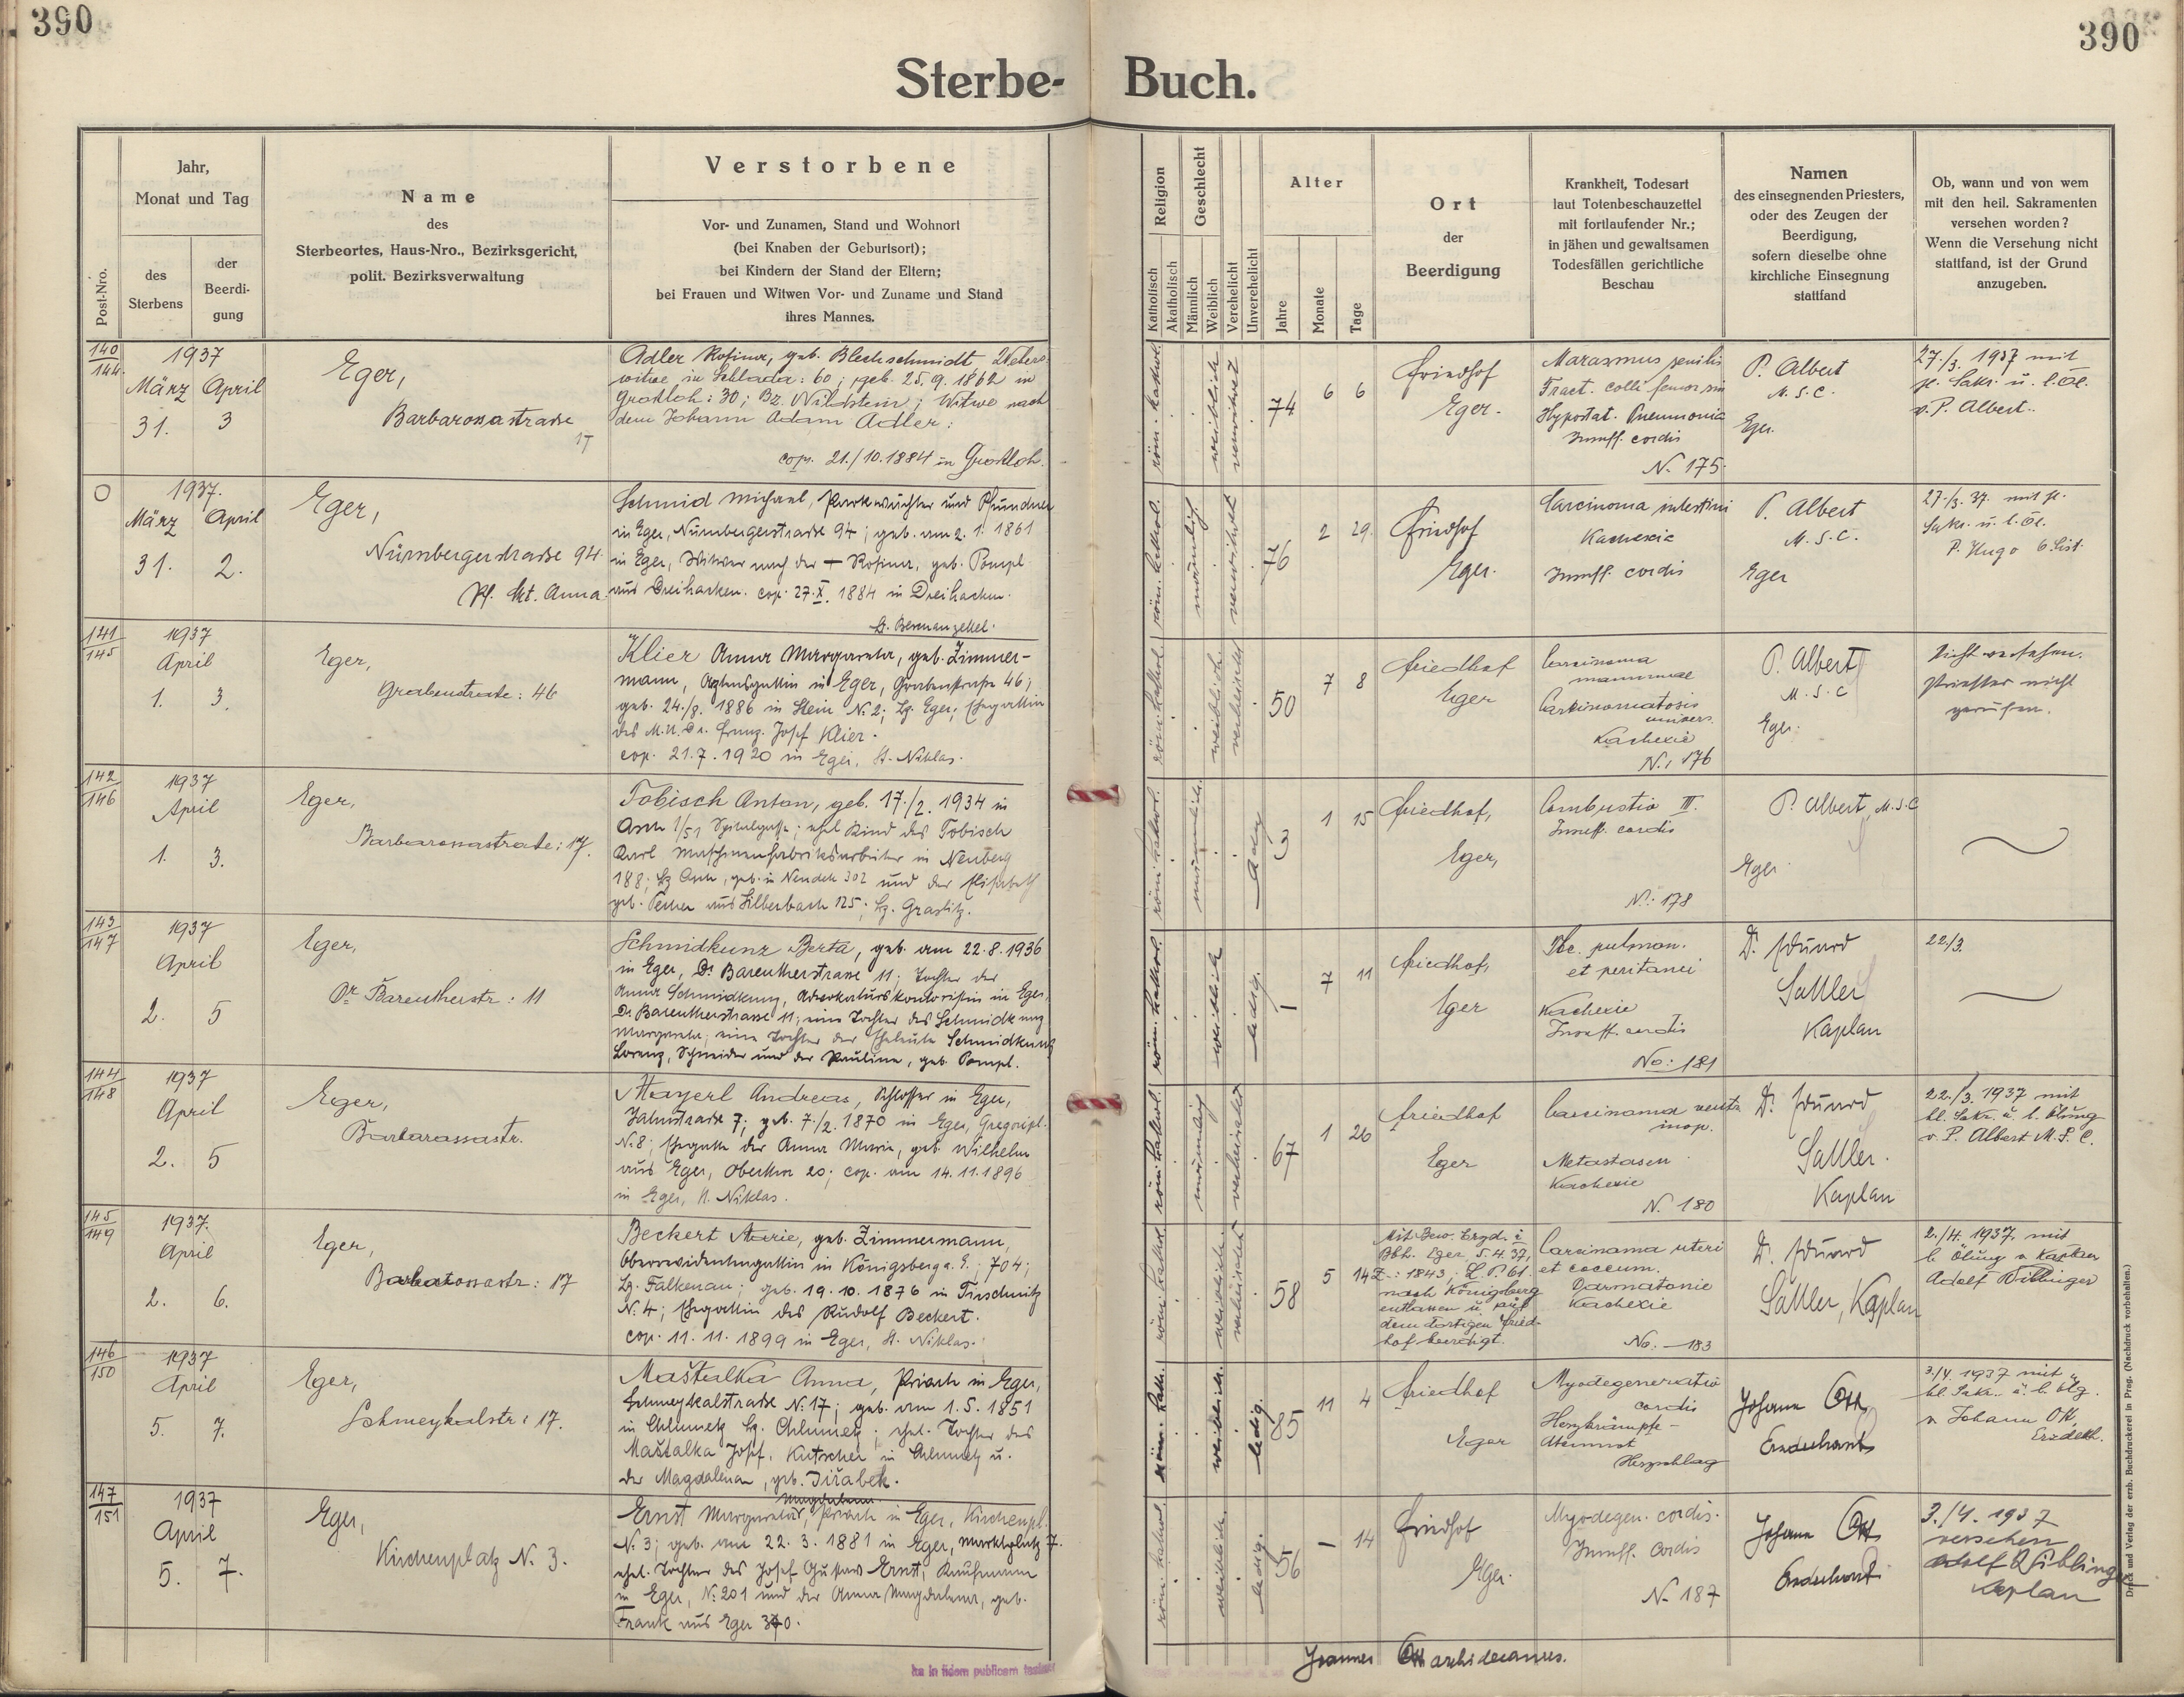 390
390
Sterbe-Buch.
Post-Nro.
Jahr,
Monat und Tag
des
Sterbens
der
Beerdi-
gung
Name
des
Sterbeortes, Haus-Nro., Bezirksgericht,
polit. Bezirksverwaltung
Verstorbene
Vor- und Zunamen, Stand und Wohnort
(bei Knaben der Geburtsort);
bei Kindern der Stand der Eltern;
bei Frauen und Witwen Vor- und Zuname und Stand
ihres Mannes.
Religion
Katholisch
Akatholisch
Geschlecht
Männlich
Weiblich
Verehelicht
Unverehelicht
Alter
Jahre
Monate
Tage
Ort
der
Beerdigung
Krankheit, Todesart
laut Totenbeschauzettel
mit fortlaufender Nr.;
in jähen und gewaltsamen
Todesfällen gerichtliche
Beschau
Namen
des einsegnenden Priesters,
oder des Zeugen der
Beerdigung,
sofern dieselbe ohne
kirchliche Einsegnung
stattfand
Ob, wann und von wem
mit den heil. Sakramenten
versehen worden?
Wenn die Versehung nicht
stattfand, ist der Grund
anzugeben.
140
144
1937
März April
31. 3
Eger,
Barbarossastrasse
17
Adler Rosina, geb. Blechschmidt Webers-
witwe in Schlada: 60; geb. 25. 9. 1862 in
Grossloh: 30; Bz. Wildstein; Witwe nach
dem Johann Adam Adler:
cop. 21./10. 1884 in Grossloh.
röm. kathol.
weiblich
verwitwet
74
6 6
Friedhof
Eger.
Marasmus senilis
Fract. colli femor. sin
Hypostat. Pneumonia
Insuff. cordis
N. 175.
P. Albert
M.S.C.
Eger.
27./3. 1937 mit
hl. Sakr. u. l. Öl.
v. P. Albert.
1937.
März April
31. 2.
Eger,
Nürnbergerstrasse 94
Pf. Skt. Anna.
Schmid Michael, Parkwächter und Pfründner
in Eger, Nürnbergerstrasse 94; geb. am 2. 1. 1861
in Eger, Witwer nach der + Rosina, geb. Pompl
aus Dreihacken. cop. 27. X. 1884 in Dreihacken.
röm. kathol.
männlich
verwitwet
76
2 29.
Friedhof
Eger.
Carcinoma intestini
Kachexie
Insuff. cordis
P. Albert
M.S.C.
Eger
27./3. 37. mit hl.
Sakr. u. l. Öl.
P. Hugo
141
145
1937
April
1. 3.
Eger,
Grabenstrasse: 46
Klier Anna Margareta, geb. Zimmer-
mann, Arztensgattin in Eger, Grabenstraße 46;
geb. 24./8. 1886 in Stein N. 2; Bz. Eger; Ehegattin
des M.U.Dr. Franz Josef Klier.
cop. 21. 7. 1920 in Eger, St. Niklas.
röm. kathol.
weiblich
verheiratet
50
7 8
Friedhof
Eger
Carcinoma
mammae
Carcinomatosis
univers.
Kachexie
N.: 176
P. Albert
M.S.C
Eger.
Nicht versehen.
Priester nicht
gerufen.
142
146
1937
April
1. 3.
Eger,
Barbarossastrasse: 17.
Tobisch Anton, geb. 17./2. 1934 in
Asch 1/51 Spitalgasse; ehel Kind des Tobisch
Karl Maschinenfabriksarbeiter in Neuberg
188; Bz Asch, geb. in Neudek 302 und der Elisabeth
geb. Pecher aus Silberbach 125; Bz. Graslitz.
röm. kathol.
männlich
ledig
3
1 15
Friedhof,
Eger,
Combustio III.
Insuff. cordis
N.: 178
P. Albert, M.S.C
Eger
143
147
1937
April
2. 5
Eger,
Dr Bareutherstr: 11
Schmidkunz Berta, geb. am 22. 8. 1936
in Eger, Dr Bareutherstrasse 11; Tochter der
Anna Schmidkunz, Advokaturskontoristin in Eger,
Dr Bareutherstrasse 11; eine Tochter des Schmidkunz
Margareta, eine Tochter der Eheleute Schmidkunz
Lorenz, Schneider und der Pauline, geb. Pompl.
röm. kathol.
weiblich
ledig.
7 11
Friedhof,
Eger
Tbc. pulmon.
et peritonei
Kachexie
Insuff. cordis
No: 181
Dr. Eduard
Sattler
Kaplan
22/3.
144
148
1937
April
2. 5
Eger,
Barbarossastr.
Mayerl Andreas, Schlosser in Eger,
Jahnstrasse 7; geb. 7./2. 1870 in Eger, Gregoripl.
N. 8; Ehegatte der Anna Maria, geb Wilhelm
aus Eger, Obertor 20; cop. am 14. 11. 1896
in Eger, St. Niklas.
röm. kathol.
männlich
verheiratet
67
1 26
Friedhof
Eger
Carcinoma ventr.
inop.
Metastasen
Kachexie
N. 180
Dr. Eduard
Sattler.
Kaplan
22./3. 1937 mit
hl. Sakr. u. l. Ölung
v. P. Albert M.S.C.
145
149
1937.
April
2. 6.
Eger,
Barbarossastr: 17
Beckert Marie, geb. Zimmermann,
Oberrevidentensgattin in Königsberg a. E.; 704;
Bz. Falkenau; geb. 19. 10. 1876 in Tirschnitz
N. 4; Ehegattin des Rudolf Beckert.
cop. 11. 11. 1899 in Eger, St. Niklas.
röm. kathol.
weiblich.
verheiratet
58
5 14
Mit Bew. Erzd. i
Bbh. Eger 5. 4. 37,
Z.: 1843, L. P. 61.
nach Königsberg
entlassen u. auf
dem dortigen Fried-
hof beerdigt.
Carcinoma uteri
et coecum.
Darmatonie
Kachexie
No: 183
Dr. Eduard
Sattler, Kaplan
2./4. 1937. mit
l. Ölung v Kaplan
Adolf
146
150
1937
April
5. 7.
Eger,
Schmeykalstr: 17.
Maštalka Anna, Private in Eger,
Schmeykalstrasse N. 17; geb. am 1. 5. 1851
in Chlumetz Bz. Chlumetz; ehel. Tochter des
Maštalka Josef, Kutscher in Chlumetz u.
der Magdalena, geb. Jiřabek.
röm. kath.
weiblich.
ledig.
85
11 4
Friedhof
Eger
Myodegeneratio
cordis
Herzkrämpfe-
Atemnot
Herzschlag
Johann Ott
Erzdechant
3./4. 1937 mit
hl. Sakr. u. l. Ölg.
v Johann Ott,
Erzdech.
147
151
1937
April
5. 7.
Eger,
Kirchenplatz N. 3.
Magdalena
Ernst Margareta, Private in Eger, Kirchenpl.
N. 3; geb. am 22. 3. 1881 in Eger, Marktplatz 7.
ehel. Tochter des Josef Gustav Ernst, Kaufmann
in Eger, N. 201 und der Anna Magdalena, geb.
Frank aus Eger
röm. kathol.
weiblich.
ledig.
56
— 14
Friedhof
Eger.
Myodegen. cordis.
Insuff. Cordis
N. 187
Johann Ott
Erzdechant
3./4. 1937
versehen
Adolf
Kaplan
Joannes Ott archidecanus.
Druck und Verlag der erzb. Buchdruckerei in Prag. (Nachdruck vorbehalten.)